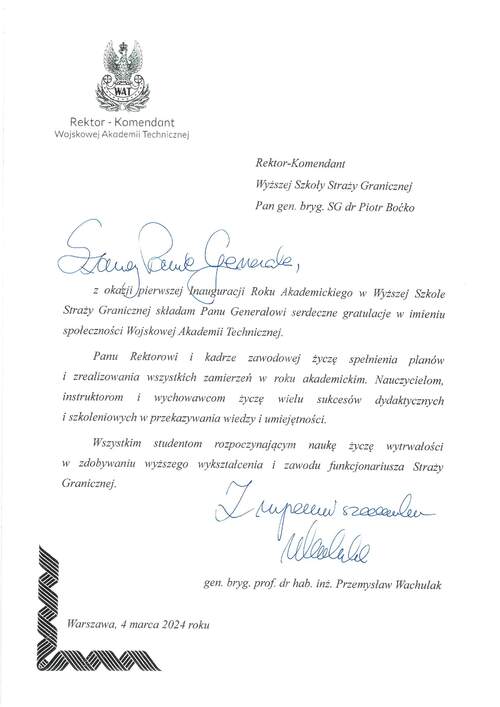 WAT
Rektor - Komendant
Wojskowej Akademii Technicznej
Rektor-Komendant
Wyższej Szkoły Straży Granicznej
Pan gen. bryg. SG dr Piotr Boćko
Szanowny Panie Generale,
z okazji pierwszej Inauguracji Roku Akademickiego w Wyższej Szkole
Straży Granicznej składam Panu Generałowi serdeczne gratulacje w imieniu
społeczności Wojskowej Akademii Technicznej.
Panu Rektorowi i kadrze zawodowej życzę spełnienia planów
i zrealizowania wszystkich zamierzeń w roku akademickim. Nauczycielom,
instruktorom i wychowawcom życzę wielu sukcesów dydaktycznych
i szkoleniowych w przekazywania wiedzy i umiejętności.
Wszystkim studentom rozpoczynającym naukę życzę wytrwałości
w zdobywaniu wyższego wykształcenia i zawodu funkcjonariusza Straży
Granicznej.
Z wyrazami szacunku
gen. bryg. prof. dr hab. inż. Przemysław Wachulak
Warszawa, 4 marca 2024 roku